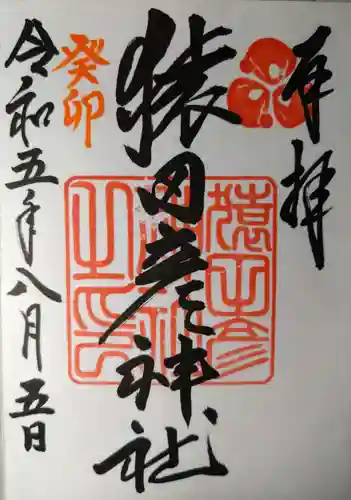 奉拝
猿田彦神社
猿田彦神社之印
癸卯
令和五年八月五日